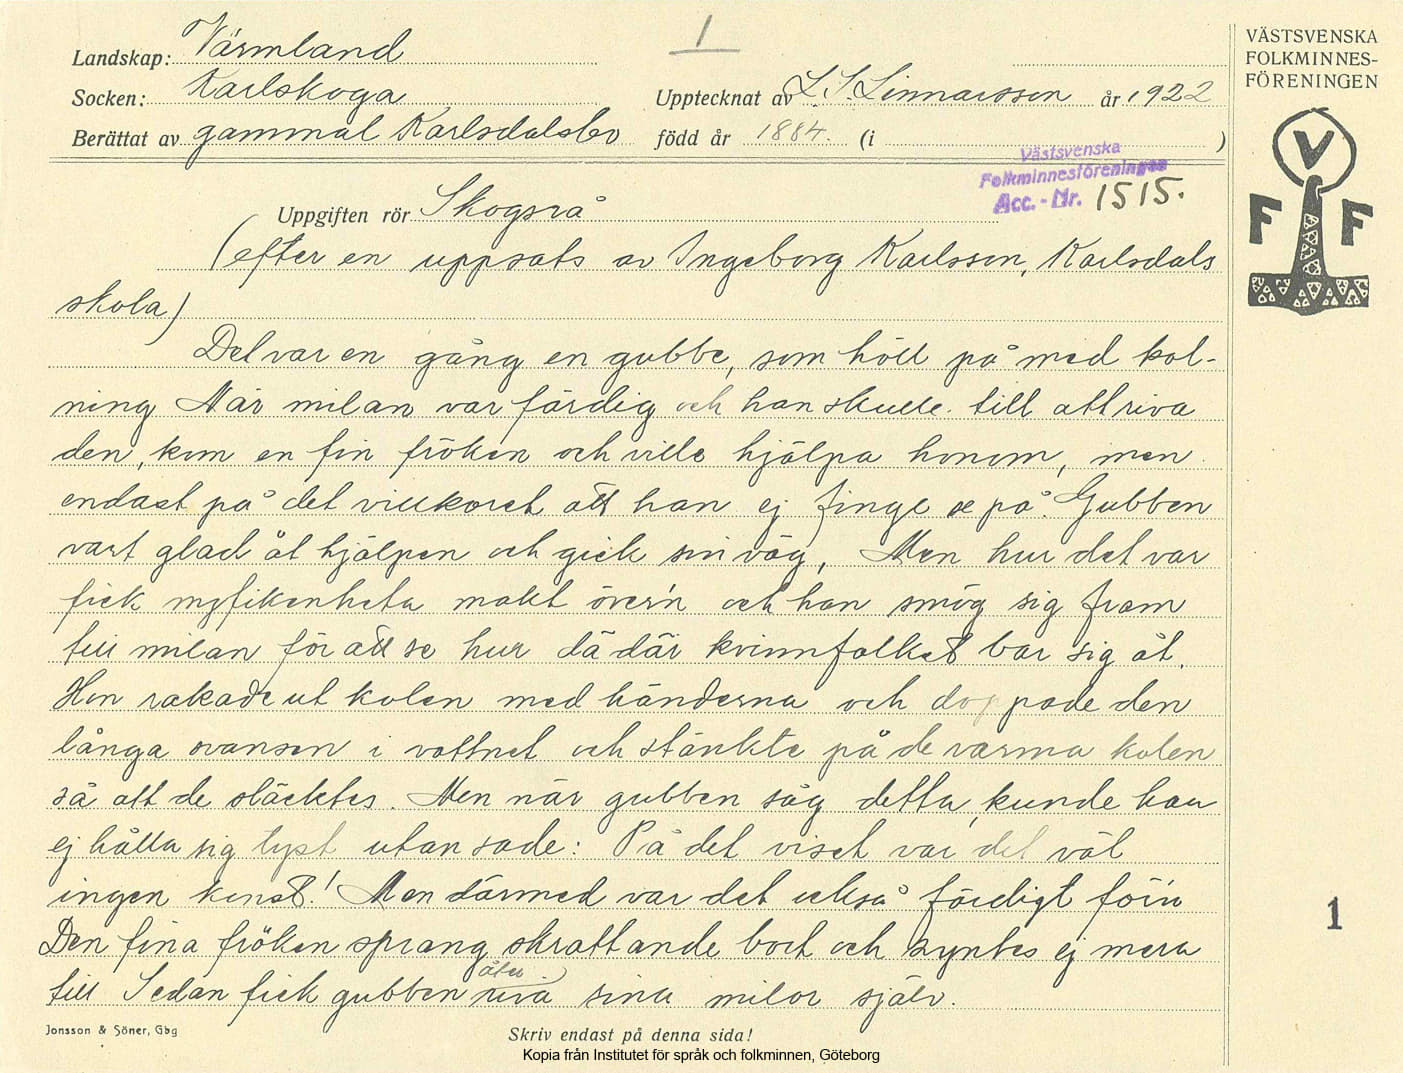 1
Landskap: Värmland
Socken: Karlskoga
Upptecknat av L. S. Linnarsson år 1922
Berättat av gammal Karlsdalsbo född år 1884. (i )
VÄSTSVENSKA
FOLKMINNES-
FÖRENINGEN
V
F F
Västsvenska
Folkminnesföreningen
Acc.-Nr. 1515.
Uppgiften rör Skogsrå
(efter en uppsats av Ingeborg Karlsson, Karlsdals
skola)
Det var en gång en gubbe, som höll på med kol-
ning När milan var färdig och han skulle till att riva
den, kom en fin fröken och ville hjälpa honom, men
endast på det villkoret att han ej finge se på. Gubben
vart glad åt hjälpen och gick sin väg, Men hur det var
fick nyfikenheta makt över'n och han smög sig fram
till milan för att se hur dä där kvinnfolket bar sig åt.
Hon rakade ut kolen med händerna och doppade den
långa svansen i vattnet och stänkte på de varma kolen
så att de släcktes. Men när gubben såg detta, kunde han
ej hålla sig tyst utan sade: På det viset var det väl
ingen konst! Men därmed var det också färdigt för'n
Den fina fröken sprang skrattande bort och syntes ej mera
till Sedan fick gubben åter riva sina milor själv.
1
Jonsson & Söner, Gbg
Skriv endast på denna sida!
Kopia från Institutet för språk och folkminnen, Göteborg